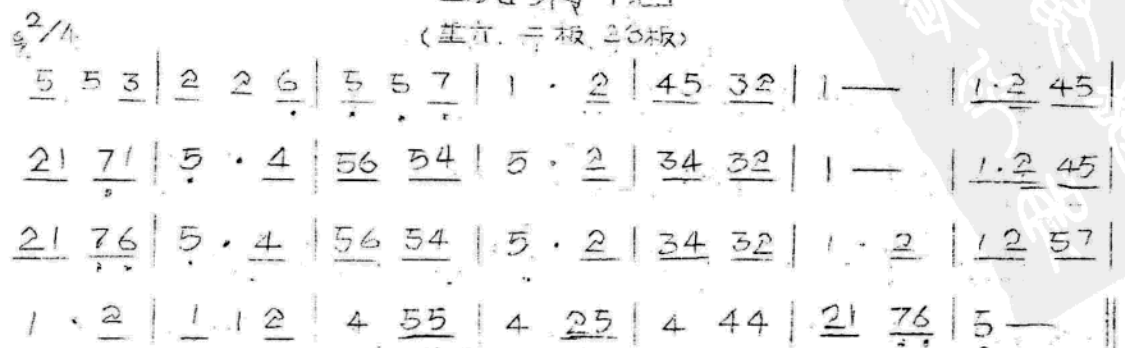 2/4
5 5 3 | 2 2 6 | 5 5 7 | 1 · 2 | 45 32 | 1 — | 1·2 45 |
21 71 | 5 · 4 | 56 54 | 5 · 2 | 34 32 | 1 — | 1·2 45 |
21 76 | 5 · 4 | 56 54 | 5 · 2 | 34 32 | 1 · 2 | 12 57 |
1 · 2 | 1 1 2 | 4 55 | 4 25 | 4 44 | 21 76 | 5 — ||